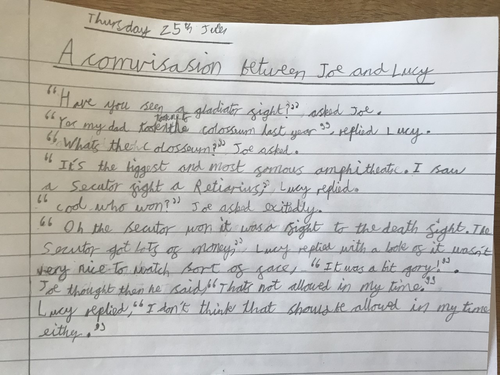 Thursday 25th June
A comvisasion between Joe and Lucy
"Have you seen a gladiator fight?", asked Joe.
"Yar my dad took me to the colosseum last year", replied Lucy.
"Whats the Colosseum?" Joe asked.
"It's the biggest and most famous amphitheatre. I saw
a Secutor fight a Retiarius", Lucy replied.
"cool who won?" Joe asked exitedly.
"Oh the secutor won it was a fight to the death fight. The
Secutor got lots of money," Lucy replied with a look of it wasn't
very nice to watch sort of face, "It was a bit gory!".
Joe thought then he said, "Thats not allowed in my time."
Lucy replied, "I don't think that should be allowed in my time
either."